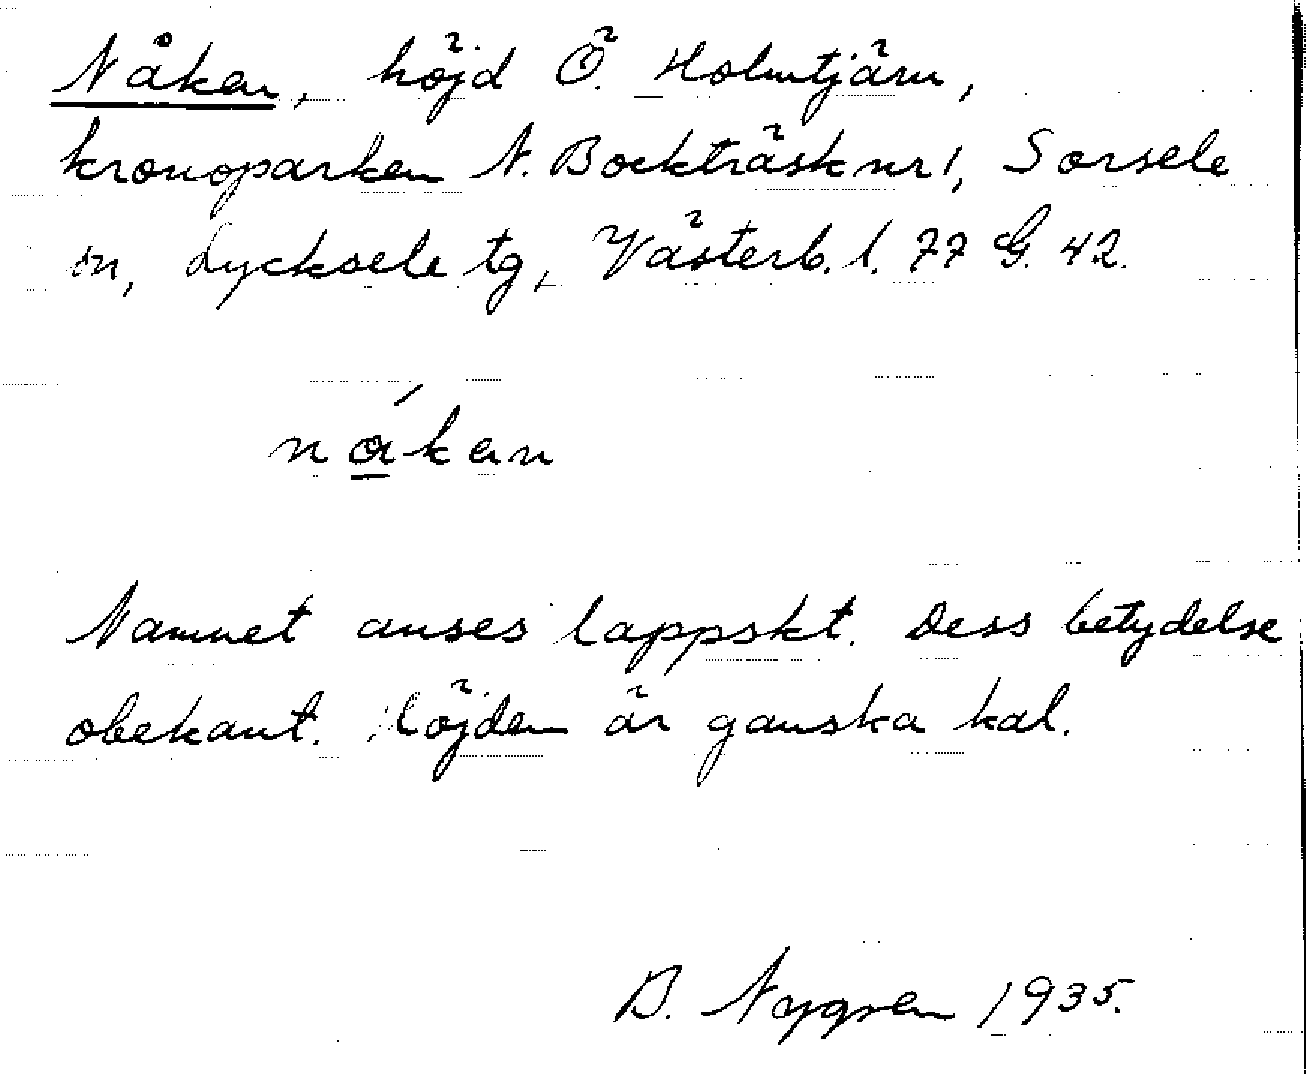 Nåken, höjd Ö. Holmtjärn,
kronoparken N. Bockträsk nr 1, Sorsele
sn, Lycksele tg, Västerb. l. 77 G. 42.
nǻkan
Namnet anses lappskt. Dess betydelse
obekant. Höjden är ganska kal.
B. Nygren 1935.